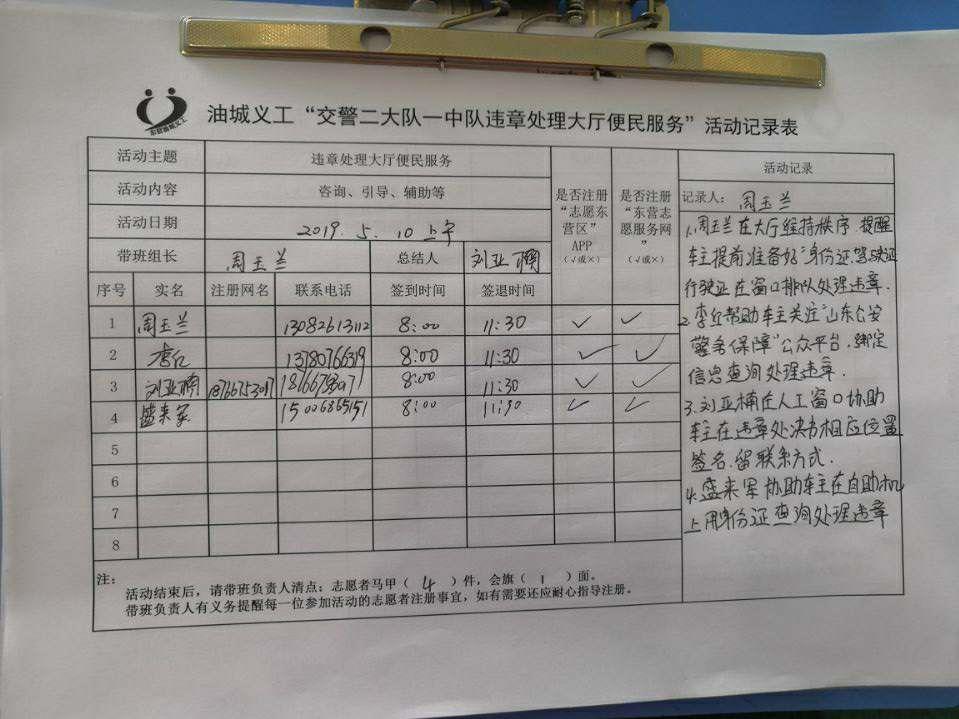 东营油城义工
油城义工“交警二大队一中队违章处理大厅便民服务”活动记录表
活动主题 违章处理大厅便民服务
活动内容 咨询、引导、辅助等
活动日期 2019.5.10上午
带班组长 周玉兰 总结人 刘亚楠
是否注册
“志愿东
营区”
APP
（√或×）
是否注册
“东营志
愿服务网
”
（√或×）
序号 实名 注册网名 联系电话 签到时间 签退时间
1 周玉兰 13082613112 8:00 11:30 ✓ ✓
2 李丘 8:00 11:30 ✓ ✓
3 刘亚楠 8:00 11:30 ✓ ✓
4 盛来军 15006865151 8:00 11:30 ✓ ✓
5
6
7
8
注：
活动结束后，请带班负责人清点：志愿者马甲（ 4 ）件，会旗（ 1 ）面。
带班负责人有义务提醒每一位参加活动的志愿者注册事宜，如有需要还应耐心指导注册。
活动记录
记录人：周玉兰
1.周玉兰在大厅维持秩序 提醒
车主提前准备好身份证驾驶证
行驶证在窗口排队处理违章.
2.李丘帮助车主关注“山东公安
警务保障”公众平台.绑定
信息查询处理违章.
3.刘亚楠在人工窗口协助
车主在违章处决书相应位置
签名.留联系方式.
4.盛来军协助车主在自助机
上用身份证查询处理违章